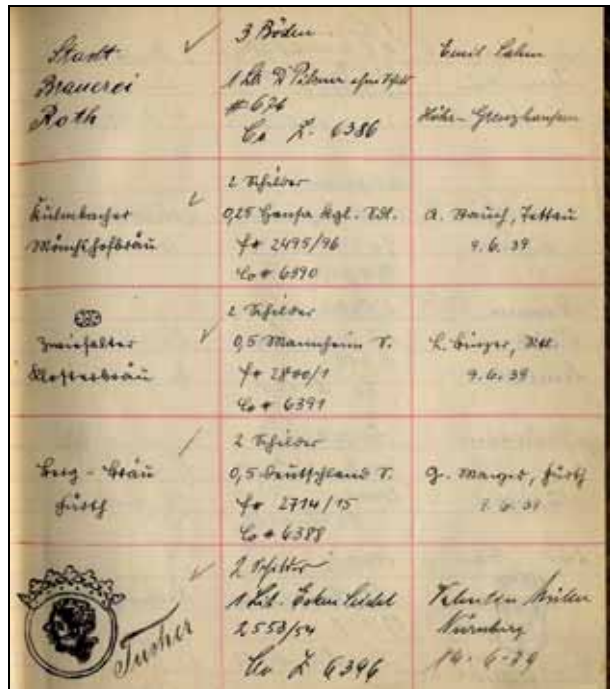 Stadt
Brauerei
Roth
3 Böden
1 Lit. D Pilsner ohne
# 676
Co Z. 6386
Emil Sahm
Höhr-Grenzhausen
Kulmbacher
Mönchshofbräu
2 Schilder
0,25 Hansa Kgl.
fo 2495/96
Co # 6390
A. Rauch, Tettau
9.6.39
Zwiefalter
Klosterbräu
2 Schilder
0,5 Mannheim S.
fo 2800/1
Co # 6391
L.
9.6.39
Berg-Bräu
Fürth
2 Schilder
0,5 Deutschland S.
fo 2714/15
Co # 6388
G. Fürth
9.6.39
Tucher
2 Schilder
1 Lit. Seidel
2553/54
Co Z 6396
Valentin Müller
Nürnberg
14.6.39